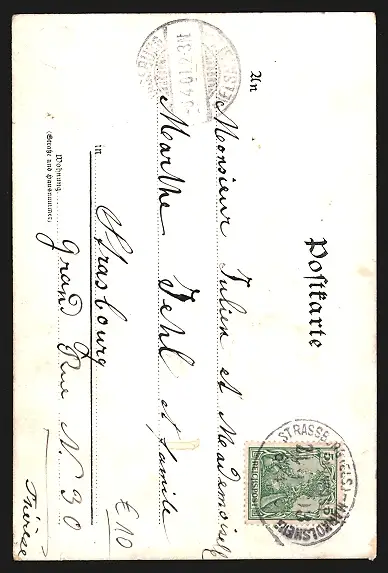 Postkarte
An
Monsieur Julien et Mademoiselle
Marthe Jehl et famille
in Strasbourg
Wohnung
(Straße und Hausnummer)
Grand Rue N. 30
£10
Thérèse
STRASSBURG (ELS)-MARKOLSHEIM
5 5